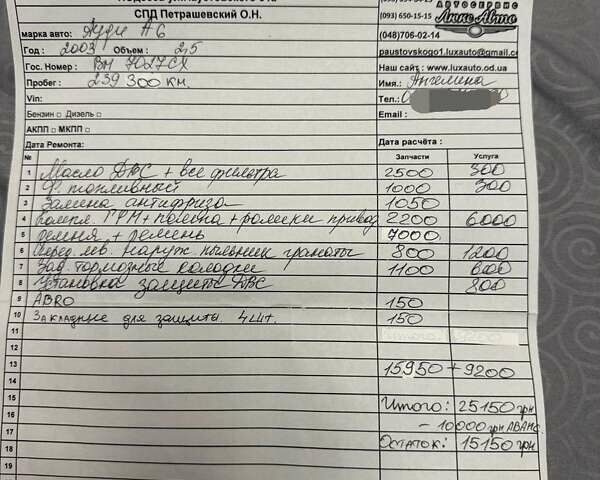 СПД Петрашевский О.Н.
АВТОСЕРВИС
Люкс Авто
(093) 650-15-15
(048)706-02-14
марка авто: Ауди А6
Год: 2003 Объем: 2,5
paustovskogo1.luxauto@gmail.co
Гос. Номер: ВН 7027СХ
Наш сайт: www.luxauto.od.ua
Пробег: 239 300 км.
Имя.: Ангелина
Vin:
Тел.:
Бензин □ Дизель □
Email:
АКПП □ МКПП □
Дата Ремонта:
Дата расчёта:
№ Запчасти Услуга
1 Масло ДВС + все фильтра 2500 300
2 Ф. топливный 1000 300
3 Замена антифриза 1050
4 Компл. ГРМ + помпа + ролики привод 2200 6000
5 ремня + ремень 7000
6 Перед. лев. наруж пыльник гранаты 800 1200
7 Зад тормозные колодки 1100 600
8 Установка защиты ДВС 800
9 ABRO 150
10 Закладные для защиты 4шт. 150
11
12
13 15950 + 9200
14
15 Итого: 25150 грн
16 - 10000 грн АВАНС
17 Остаток: 15150 грн
18
19